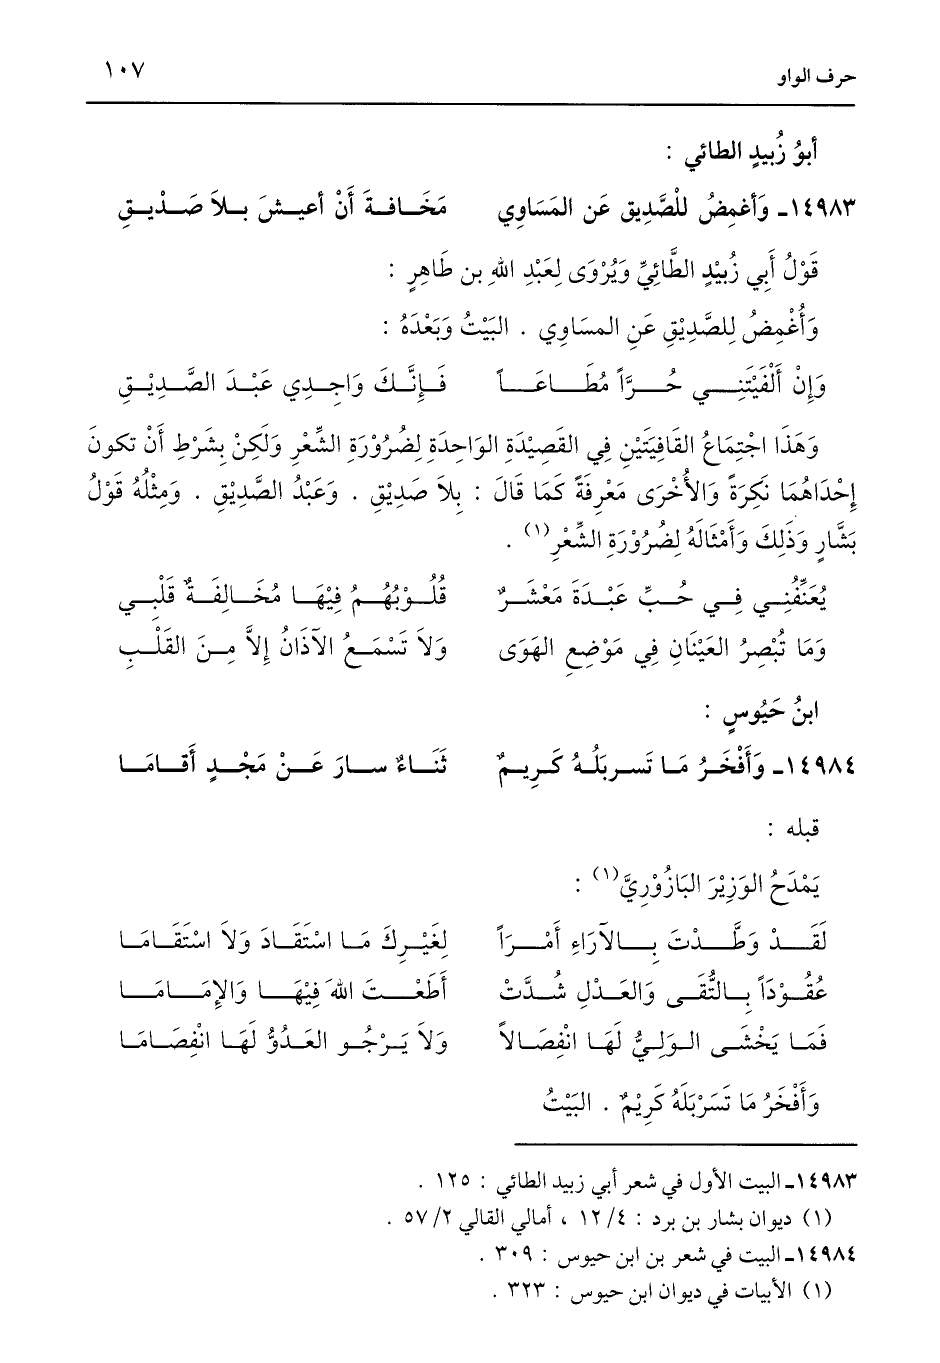 حرف الواو ١٠٧
أبوُ زُبيدٍ الطائي :
١٤٩٨٣ـ وَأغمِضُ للْصَّدِيق عَن المَسَاوِي مَخَافةَ أَنْ أعيشَ بلاَ صَدْيقِ
قَوْلُ أَبِي زُبَيْدٍ الطَّائِيِّ وَيُرْوَى لِعَبْدِ اللهِ بن طَاهِرٍ :
وَأُغْمِضُ لِلصَّدِيْقِ عَنِ المسَاوِي . البَيْتُ وَبَعْدَهُ :
وَإِنْ أَلْفَيْتَنِي حُرَّاً مُطَاعَاً فَإِنَّكَ وَاجِدِي عَبْدَ الصَّدِيْقِ
وَهَذَا اجْتِمَاعُ القَافِيَتَيْنِ فِي القَصِيْدَةِ الوَاحِدَةِ لِضُرُوْرَةِ الشِّعْرِ وَلَكِنْ بِشَرْطِ أَنْ تكونَ
إِحْدَاهُمَا نَكِرَةً وَالأُخْرَى مَعْرِفَةً كَمَا قَالَ : بِلاَ صَدِيْقِ . وَعَبْدُ الصَّدِيْقِ . وَمِثْلُهُ قَوْلُ
بَشَّارٍ وَذَلِكَ وَأَمْثَالَهُ لِضُرُوْرَةِ الشِّعْرِ(١) .
يُعَنِّفُنِي فِي حُبِّ عَبْدَةَ مَعْشَرٌ قُلُوْبُهُمُ فِيْهَا مُخَالِفَةٌ قَلْبِي
وَمَا تُبْصِرُ العَيْنَانِ فِي مَوْضِعِ الهَوَى وَلاَ تَسْمَعُ الآذَانُ إِلاَّ مِنَ القَلْبِ
ابنُ حَيُوسٍ :
١٤٩٨٤ـ وَأَفْخَرُ مَا تَسربَلُهُ كَريمٌ ثَنَاءٌ سارَ عَنْ مَجْدٍ أَقامَا
قبله :
يَمْدَحُ الوَزِيْرَ البَازُوْرِيَّ(١) :
لَقَدْ وَطَّدْتَ بِالآرَاءِ أَمْرَاً لِغَيْرِكَ مَا اسْتَقَادَ وَلاَ اسْتَقَامَا
عُقُوْدَاً بِالتُّقَى وَالعَدْلِ شُدَّتْ أَطَعْتَ اللهَ فِيْهَا وَالإِمَامَا
فَمَا يَخْشَى الوَلِيُّ لَهَا انْفِصَالاً وَلاَ يَرْجُو العَدُوُّ لَهَا انْفِصَامَا
وَأَفْخَرُ مَا تَسَرْبَلَهُ كَرِيْمٌ . البَيْتُ
١٤٩٨٣ـ البيت الأول في شعر أبي زبيد الطائي : ١٢٥ .
(١) ديوان بشار بن برد : ١٢/٤ ، أمالي القالي ٥٧/٢ .
١٤٩٨٤ـ البيت في شعر بن ابن حيوس : ٣٠٩ .
(١) الأبيات في ديوان ابن حيوس : ٣٢٣ .